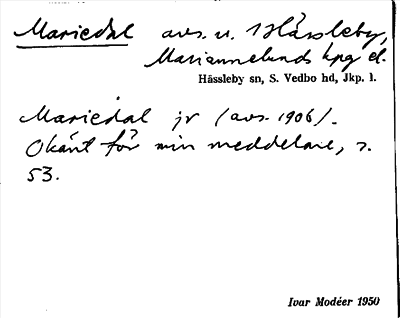 Mariedal avs. u. Hässleby,
Mariannelunds kpg el.
Hässleby sn, S. Vedbo hd, Jkp. l.
Mariedal jr (avs. 1906).
Okänt för min meddelare, s.
53.
Ivar Modéer 1950